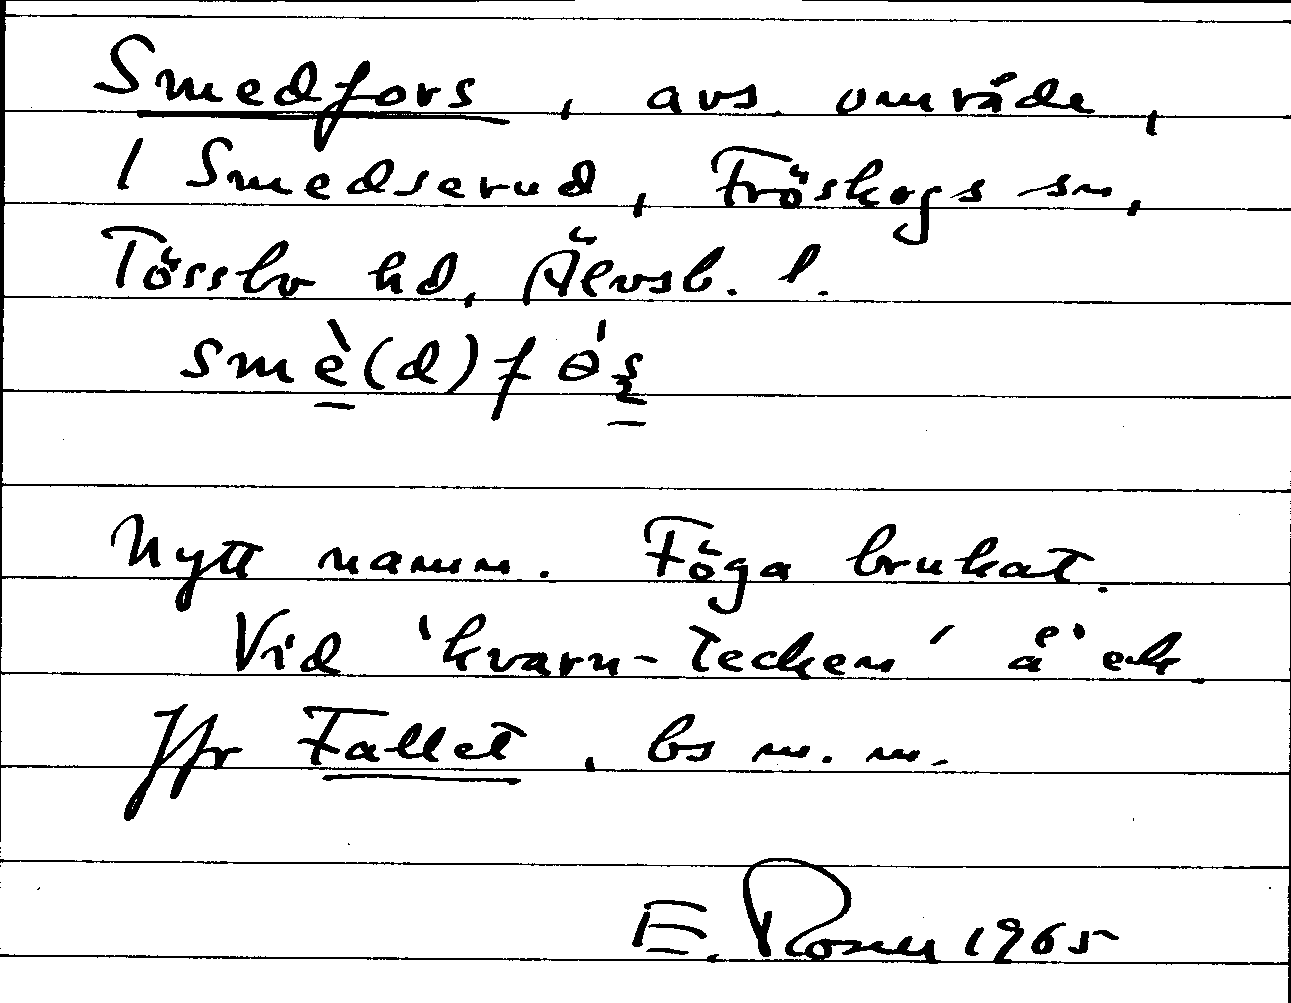 Smedfors, avs. område,
/ Smedserud, Fröskogs sn,
Tössbo hd, Älvsb. l.
smè(d)fɵ́ʂ
Nytt namn. Föga brukat.
Vid 'kvarn-tecken' å ek.
Jfr Fallet, bs m. m.
E. Rosell 1965